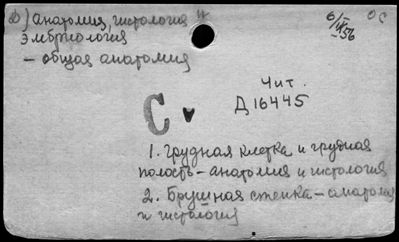 D) анатомия, гистология и
эмбриология
– общая анатомия
6/IX 56
ОС
Чит.
Д 16445
С
1. Грудная клетка и грудная
полость – анатомия и гистология
2. Брушная стенка – анатомия
и гистология